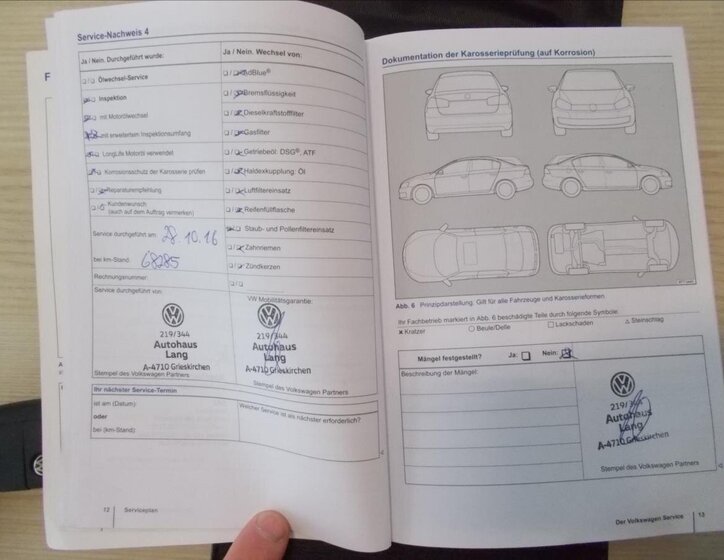 Service-Nachweis 4
Ja / Nein. Durchgeführt wurde:
Ölwechsel-Service
Inspektion
mit Motorölwechsel
mit erweitertem Inspektionsumfang
LongLife Motoröl verwendet
Korrosionsschutz der Karosserie prüfen
Reparaturempfehlung
Kundenwunsch
(auch auf dem Auftrag vermerken)
Service durchgeführt am: 28.10.16
bei km-Stand: 68285
Rechnungsnummer:
Service durchgeführt von:
219/344
Autohaus
Lang
A-4710 Grieskirchen
Stempel des Volkswagen Partners
Ja / Nein. Wechsel von:
AdBlue®
Bremsflüssigkeit
Dieselkraftstofffilter
Gasfilter
Getriebeöl: DSG®, ATF
Haldexkupplung: Öl
Luftfiltereinsatz
Reifenfüllflasche
Staub- und Pollenfiltereinsatz
Zahnriemen
Zündkerzen
VW Mobilitätsgarantie:
219/344
Autohaus
Lang
A-4710 Grieskirchen
Stempel des Volkswagen Partners
Ihr nächster Service-Termin
ist am (Datum):
oder
bei (km-Stand):
Welcher Service ist als nächster erforderlich?
12 Serviceplan
Dokumentation der Karosserieprüfung (auf Korrosion)
Abb. 6 Prinzipdarstellung: Gilt für alle Fahrzeuge und Karosserieformen
Ihr Fachbetrieb markiert in Abb. 6 beschädigte Teile durch folgende Symbole:
× Kratzer ○ Beule/Delle □ Lackschaden △ Steinschlag
Mängel festgestellt? Ja: Nein:
Beschreibung der Mängel:
219/344
Autohaus
Lang
A-4710 Grieskirchen
Stempel des Volkswagen Partners
Der Volkswagen Service 13